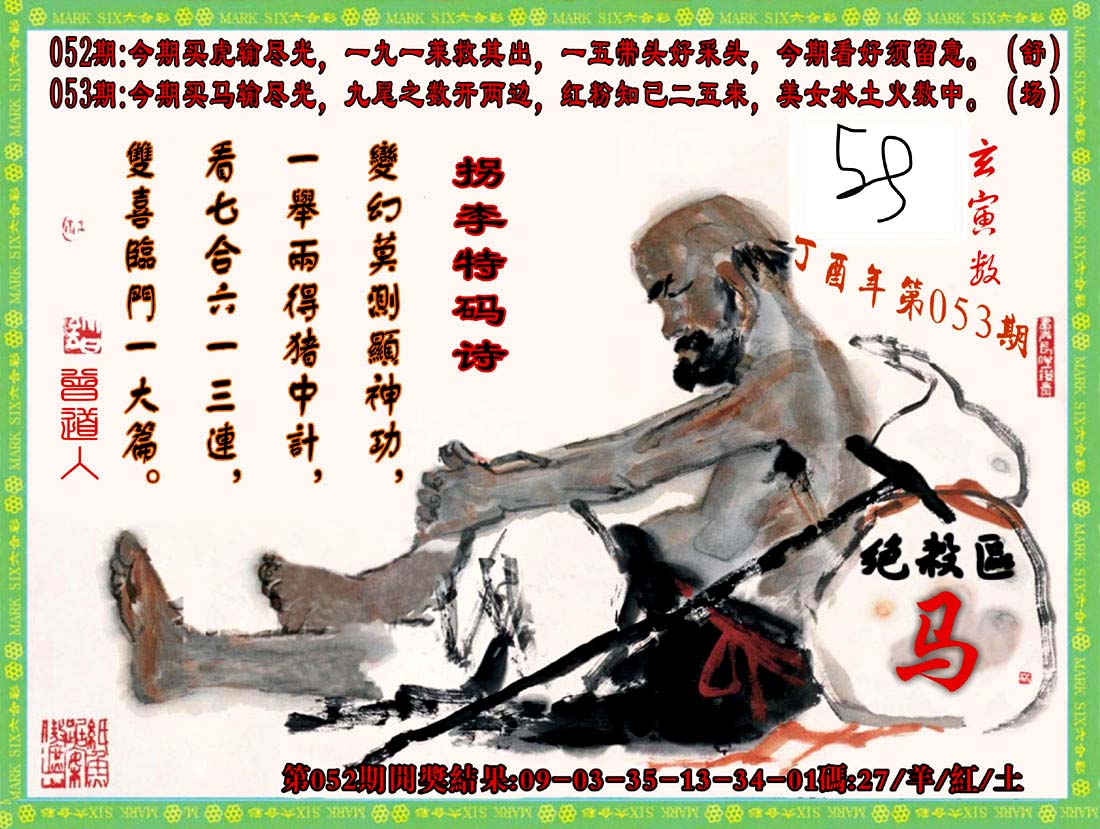 MARK SIX六合彩
052期:今期买虎输尽光，一九一莱救其出，一五带头好采头，今期看好须留意。(舒)
053期:今期买马输尽光，九尾之数开两边，红粉知已二五来，美女水土火数中。(场)
拐李特码诗
變幻莫測顯神功，
一舉兩得猪中計，
看七合六一三連，
雙喜臨門一大篇。
玄寅数
丁酉年第053期
曾道人
绝殺區
马
第052期開獎結果:09-03-35-13-34-01碼:27/羊/紅/土